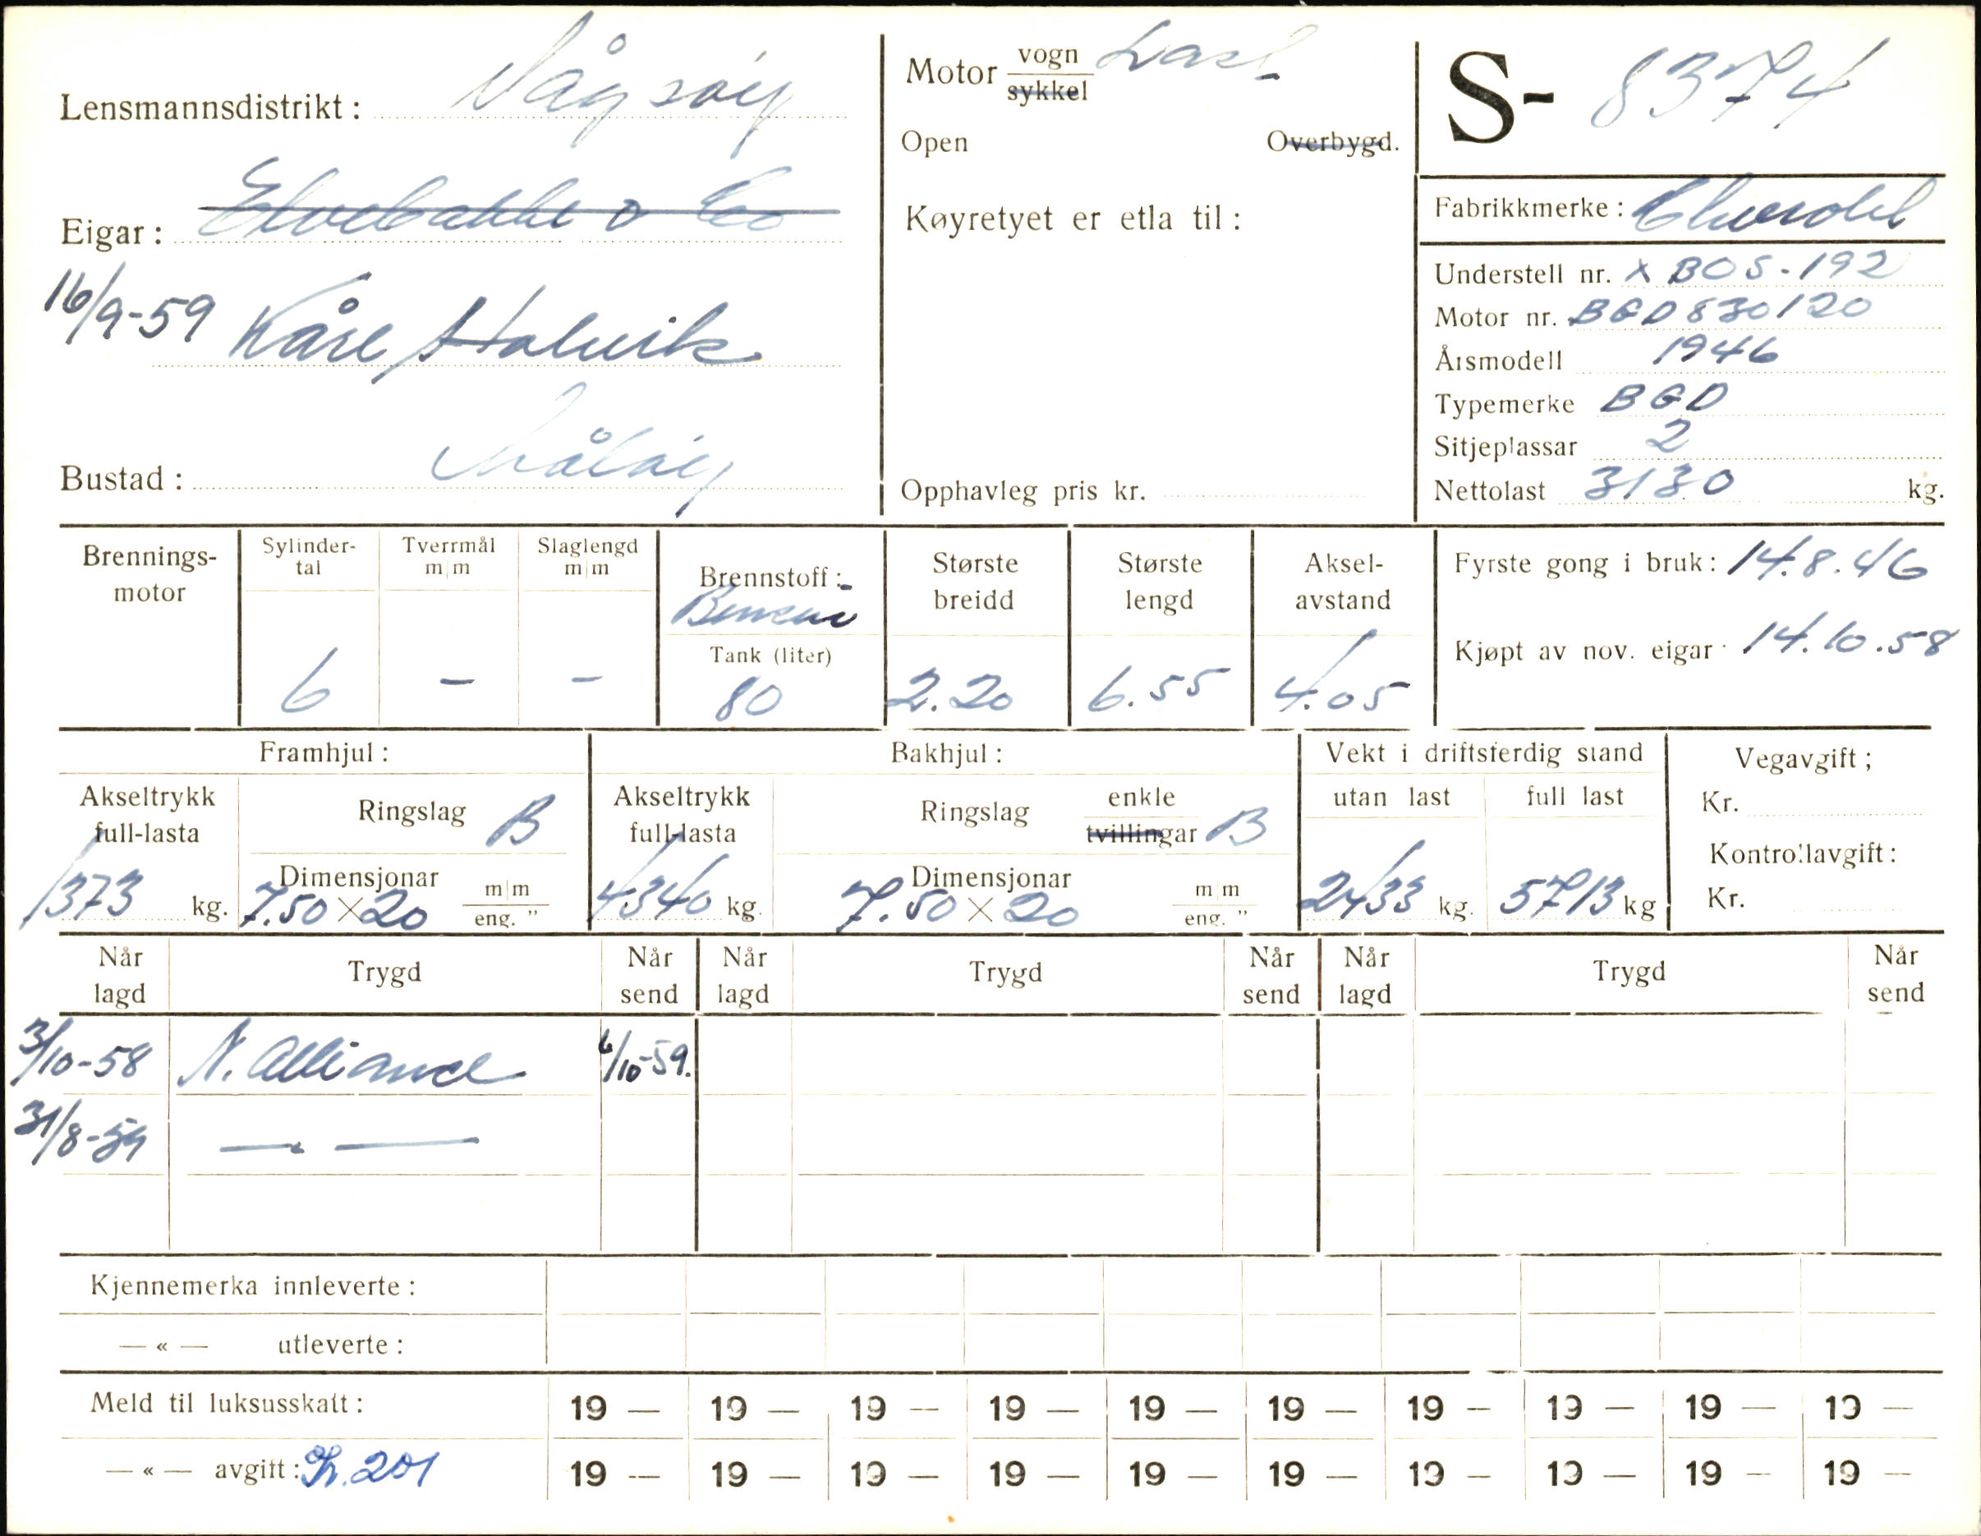 Lensmannsdistrikt: Vågsøy
Eigar: Elvebakke o Co
16/9-59 Kåre Halvik
Bustad: Måløy
Motor vogn Last
sykkel
Open Overbygd.
Køyretyet er etla til:
Opphavleg pris kr.
S- 8374
Fabrikkmerke: Chevrolet
Understell nr. X BOS-192
Motor nr. BGD830120
Årsmodell 1946
Typemerke BGD
Sitjeplassar 2
Nettolast 3130 kg.
Brennings-
motor
Sylinder-
tal
6
Tverrmål
m|m
—
Slaglengd
m|m
—
Brennstoff:
Bensin
Tank (liter)
80
Største
breidd
2.20
Største
lengd
6.55
Aksel-
avstand
4.05
Fyrste gong i bruk: 14.8.46
Kjøpt av nov. eigar 14.10.58
Framhjul:
Akseltrykk
full-lasta
1373 kg.
Ringslag B
Dimensjonar m|m
7.50×20 eng. "
Bakhjul:
Akseltrykk
full-lasta
4340 kg.
Ringslag enkle
tvillingar B
Dimensjonar m m
7.50×20 eng. "
Vekt i driftsferdig stand
utan last full last
2433 kg. 5713 kg
Vegavgift;
Kr.
Kontrollavgift:
Kr.
Når
lagd Trygd Når
send Når
lagd Trygd Når
send Når
lagd Trygd Når
send
3/10-58 N. Alliance 6/10-59.
31/8-59 — " —
Kjennemerka innleverte:
— « — utleverte:
Meld til luksusskatt: 19 — 19 — 19 — 19 — 19 — 19 — 19 — 19 — 19 — 19 —
— « — avgift: Kr. 201 19 — 19 — 19 — 19 — 19 — 19 — 19 — 19 — 19 — 19 —